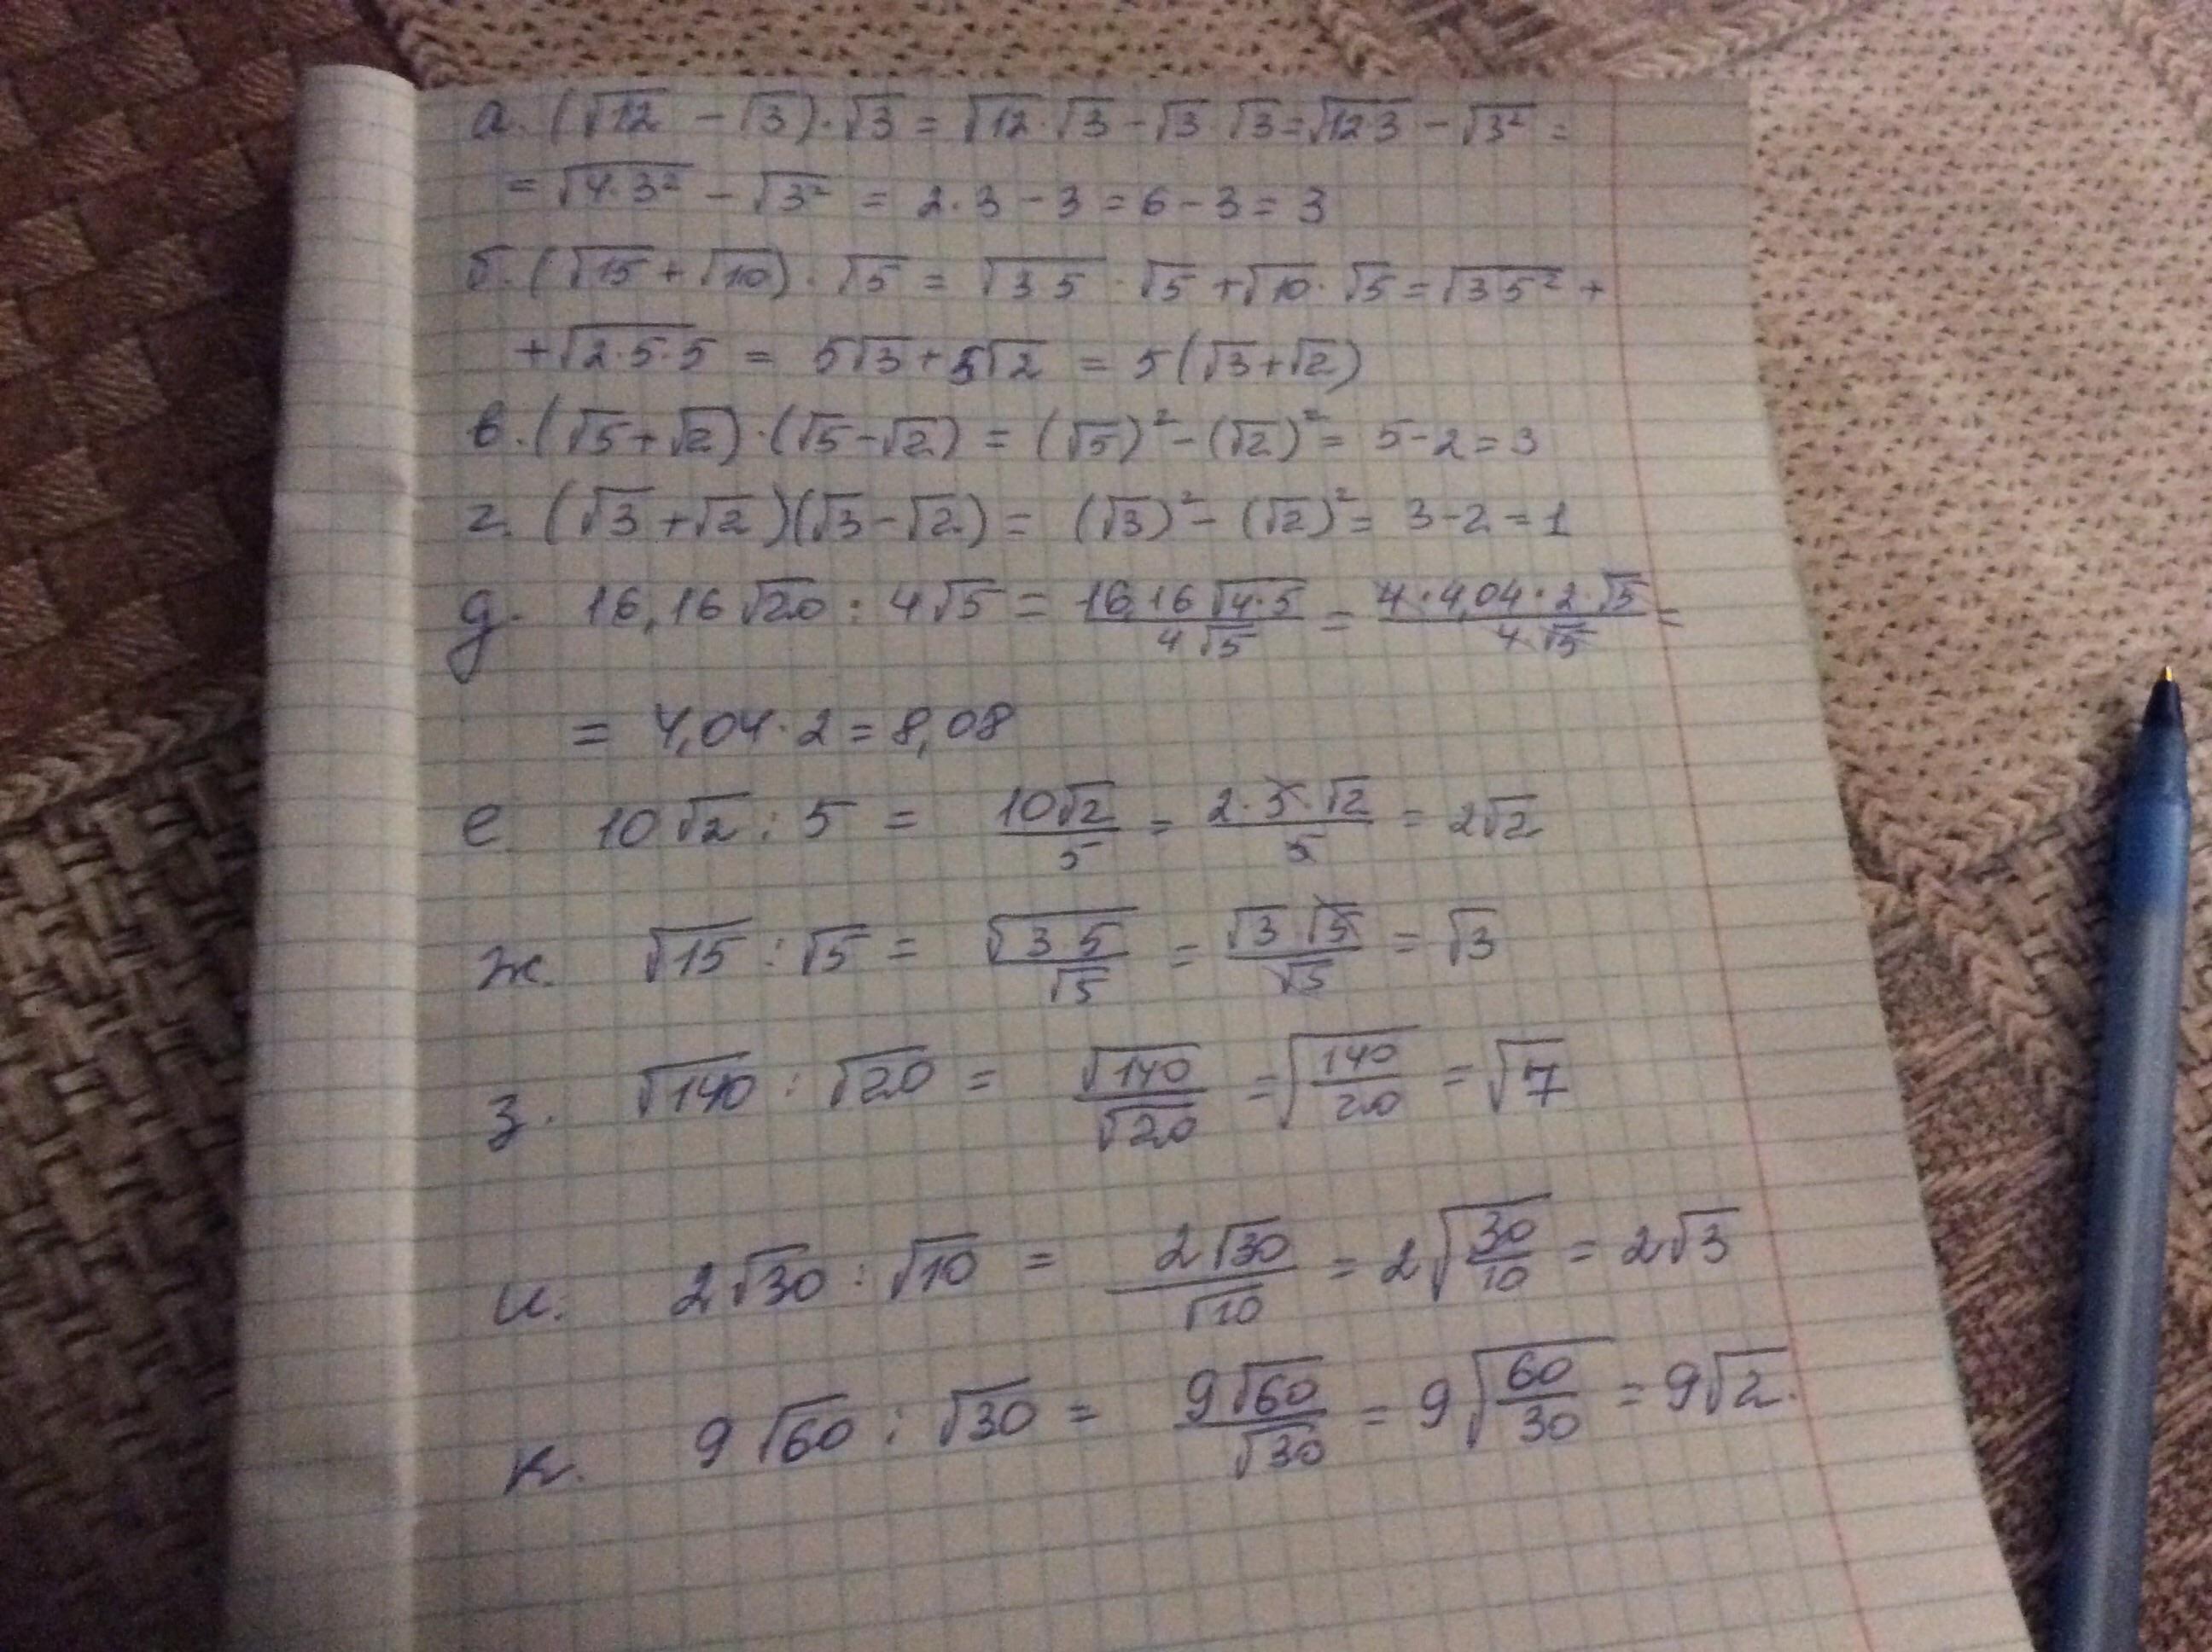 а. (√12 - √3)·√3 = √12·√3 - √3·√3 = √12 3 - √3² =
= √4·3² - √3² = 2·3 - 3 = 6 - 3 = 3
б. (√15 + √10)·√5 = √3 5 · √5 + √10 · √5 = √3 5² +
+ √2·5·5 = 5√3 + 5√2 = 5(√3 + √2)
в. (√5 + √2)·(√5 - √2) = (√5)² - (√2)² = 5 - 2 = 3
г. (√3 + √2)(√3 - √2) = (√3)² - (√2)² = 3 - 2 = 1
д. 16,16√20 : 4√5 = 16,16√4·5 / 4√5 = 4·4,04·2·√5 / 4·√5 =
= 4,04·2 = 8,08
е 10√2 : 5 = 10√2 / 5 = 2·5·√2 / 5 = 2√2
ж. √15 : √5 = √3 5 / √5 = √3·√5 / √5 = √3
з. √140 : √20 = √140 / √20 = √(140/20) = √7
и. 2√30 : √10 = 2√30 / √10 = 2√(30/10) = 2√3
к. 9√60 : √30 = 9√60 / √30 = 9√(60/30) = 9√2.